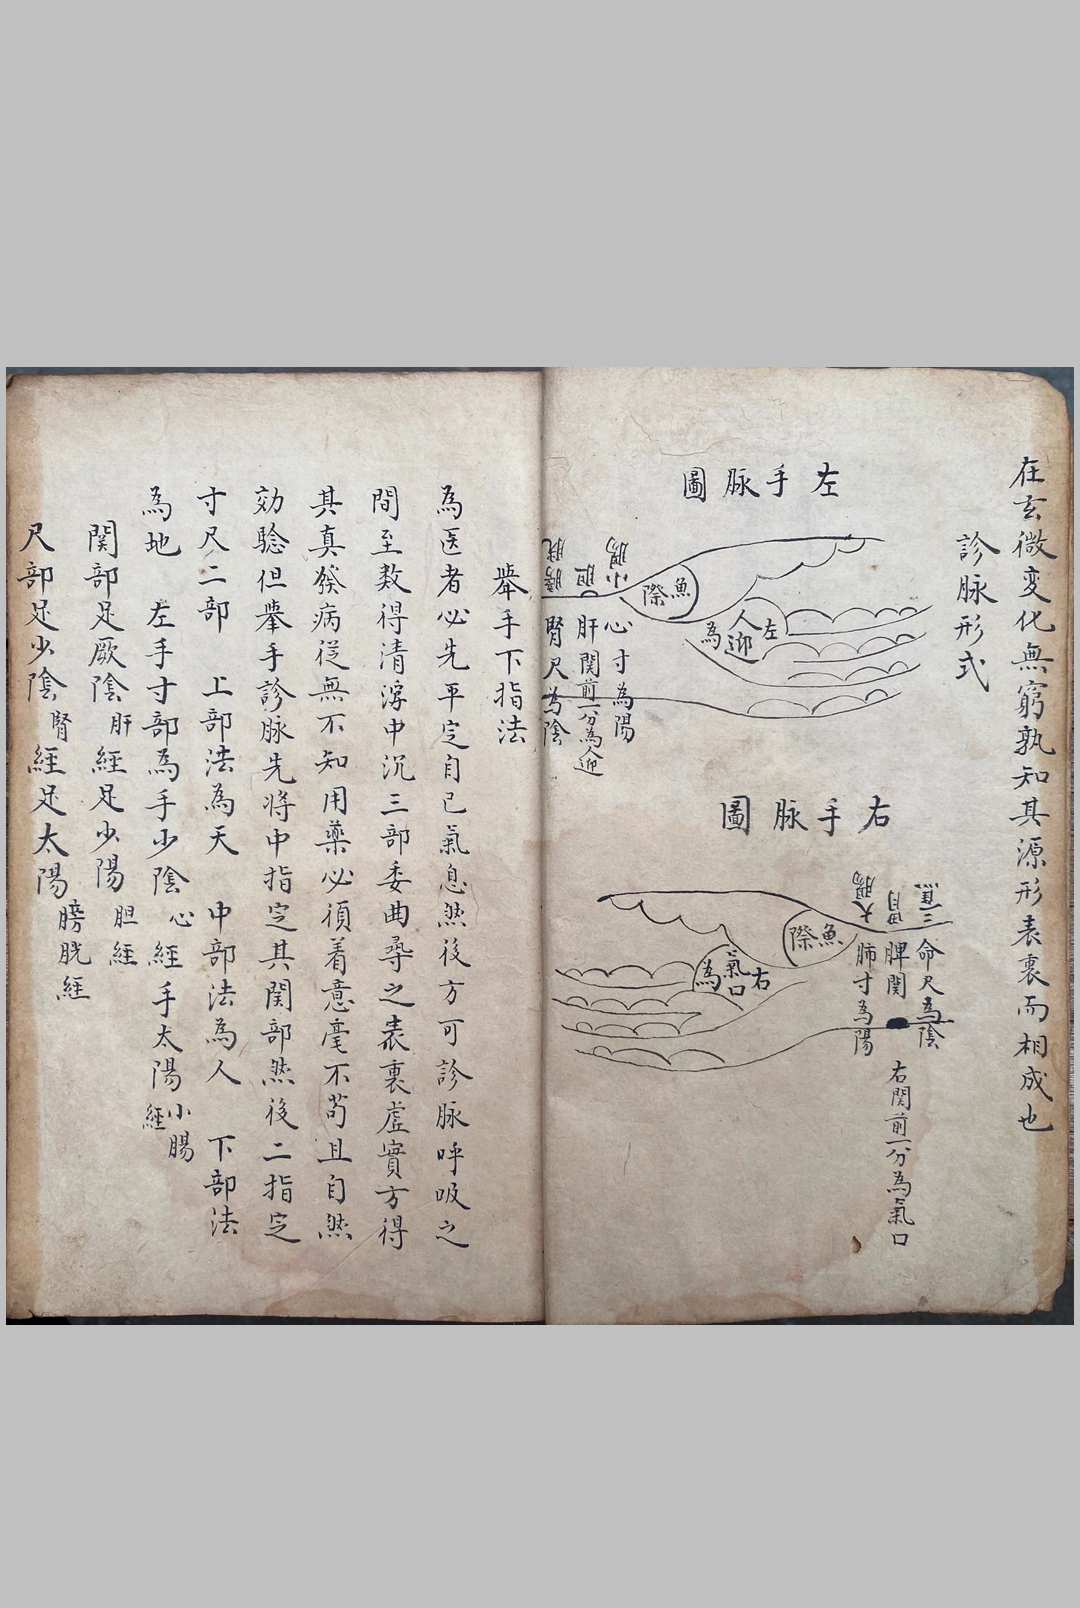 在玄微変化無窮孰知其源形表裏而相成也
診脉形式
左手脉圖
魚際
左人迎為
小腸
胆
膀胱
心寸為陽
肝関前一分為人迎
腎尺為陰
右手脉圖
魚際
右氣口為
三焦
胃
大腸
命尺為陰
脾関
肺寸為陽
右関前一分為氣口
舉手下指法
為医者必先平定自己氣息然後方可診脉呼吸之
間至数得清浮中沉三部委曲尋之表裏虛實方得
其真發病從無不知用藥必須着意毫不苟且自然
効驗但舉手診脉先将中指定其関部然後二指定
寸尺二部 上部法為天 中部法為人 下部法
為地 左手寸部為手少陰心經手太陽小腸經
関部足厥陰肝經足少陽胆經
尺部足少陰腎經足太陽膀胱經